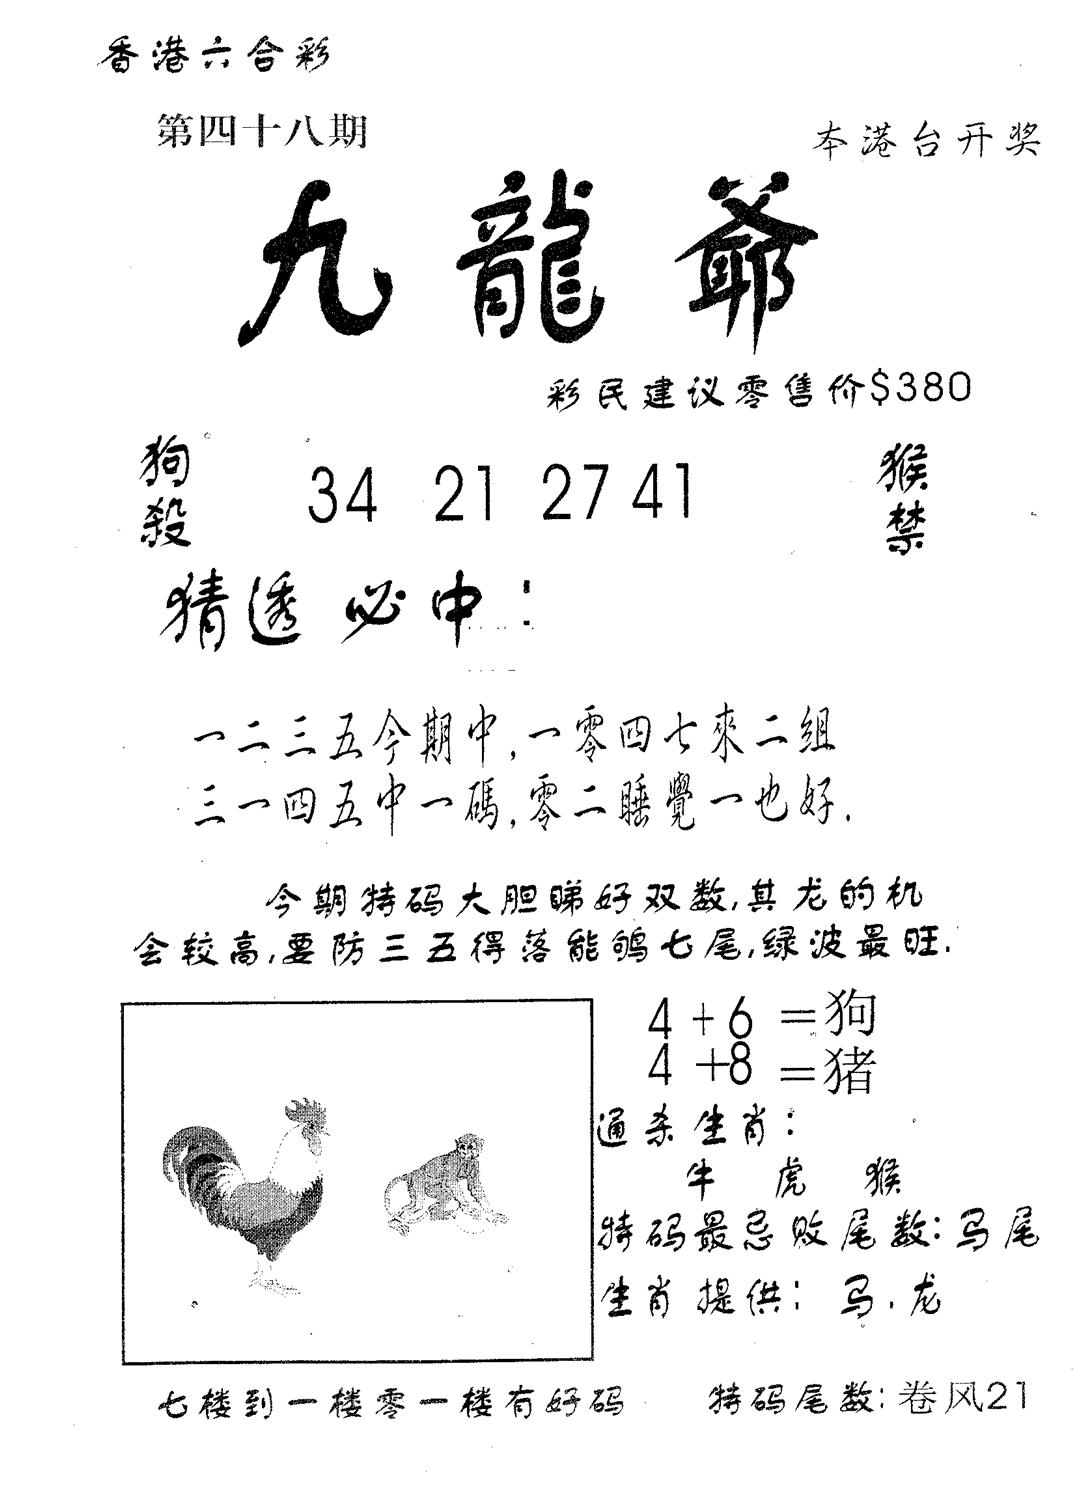 香港六合彩
第四十八期
本港台开奖
九龍爺
彩民建议零售价$380
狗殺
34 21 27 41
猴禁
猜透必中：
一二三五今期中,一零四七來二組
三一四五中一碼,零二睡覺一也好.
今期特码大胆睇好双数,其龙的机
会较高,要防三五得落能鸲七尾,绿波最旺.
4+6=狗
4+8=猪
通杀生肖：
牛 虎 猴
特码最忌败尾数：马尾
生肖提供：马.龙
七楼到一楼零一楼有好码
特码尾数：卷风21